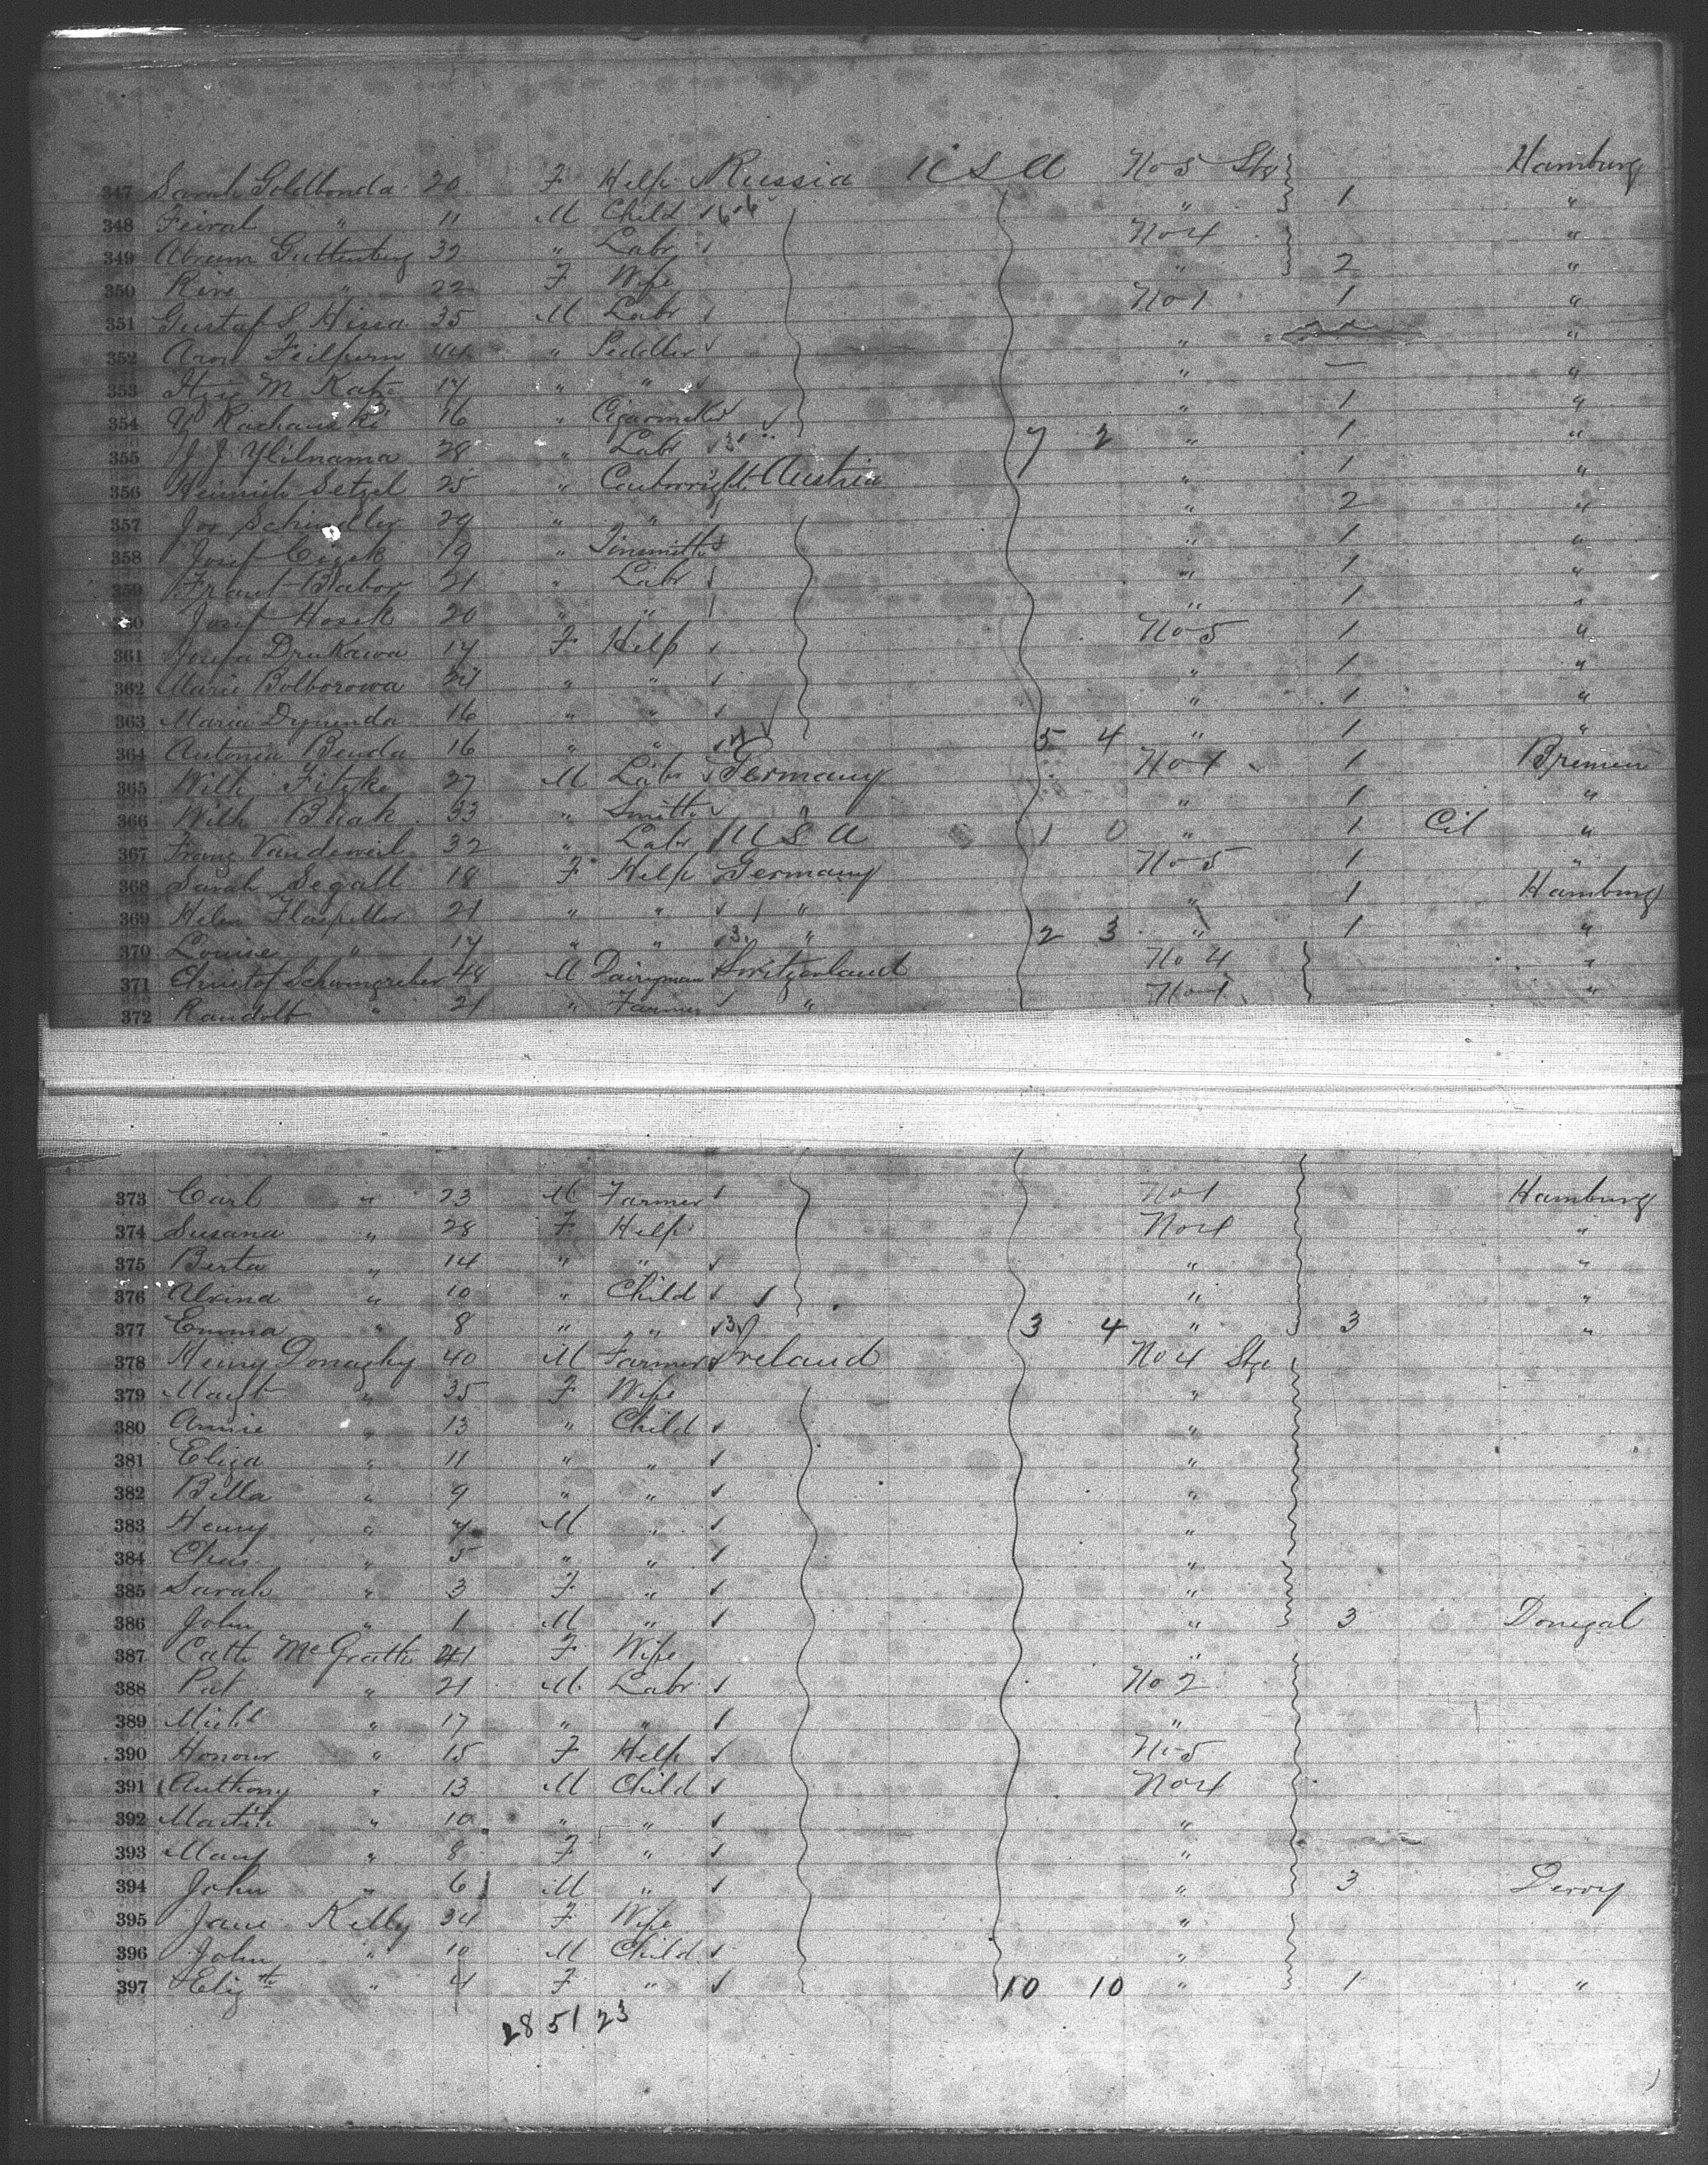 347 Sarah Goldbonda 20 F Help Russia U S A No 5 Stg Hamburg
348 Feival " 11 M Child " 1 "
349 Abram Guttenberg 32 " Labr No 4 "
350 Rive " 22 F Wife " 2 "
351 Gustaf S Hissa 35 M Labr No 1 1 "
352 Aron Feilpern 44 " Peddler " "
353 M Katz 17 " " " — "
354 16 " Cigarmkr " 1 "
355 J J Ylilnama 28 " Labr 7 2 " 1 "
356 Heinrich Setzel 25 " Austria " 1 "
357 Jos Schindler 29 " " " 2 "
358 Josef Cizek 19 " Tinsmith " 1 "
359 Frant Babor 21 " Labr " 1 "
360 Josef Hosek 20 " " " 1 "
361 Josefa Drukawa 17 F Help No 5 1 "
362 Marie Bolborowa " " " 1 "
363 Maria Dynenda 16 " " " 1 "
364 Antonia Benda 16 " " 5 4 " 1 "
365 Wilh Fitzke 27 M Labr Germany No 1 1 Bremen
366 Wilh 33 " Smith " 1 "
367 Franz Vandeweil 32 " Labr U S A 1 0 " 1 Cit "
368 Sarah Segall 18 F Help Germany No 5 1 "
369 Helen 21 " " " " 1 Hamburg
370 Louise " 17 " " " 2 3 " 1 "
371 Christof Schwingreiber 48 M Dairyman Switzerland No 4 "
372 Randolf " 21 " Farmer " No 1 "
373 Carl " 23 M Farmer No 1 Hamburg
374 Susana " 28 F Help No 4 "
375 Berta " 14 " " " "
376 Alvina " 10 " Child " "
377 Emma " 8 " " 3 4 " 3 "
378 Henry Donaghy 40 M Farmer Ireland No 4 Stg
379 Margt " 35 F Wife "
380 Annie " 13 " Child "
381 Eliza " 11 " " "
382 Bella " 9 " " "
383 Henry " 7 M " "
384 Chas " 5 " " "
385 Sarah " 3 F " "
386 John " 1 M " " 3 Donegal
387 Cath McGrath 41 F Wife "
388 Pat " 21 M Labr No 2
389 Michl " 17 " " "
390 Honour " 15 F Help No 5
391 Anthony " 13 M Child No 4
392 Martin " 10 " " "
393 Mary " 8 F " "
394 John " 6 M " " 3 Derry
395 Jane Kelly 34 F Wife "
396 John " 10 M Child "
397 Elizth " 4 F " 10 10 " 1 "
28 51 23